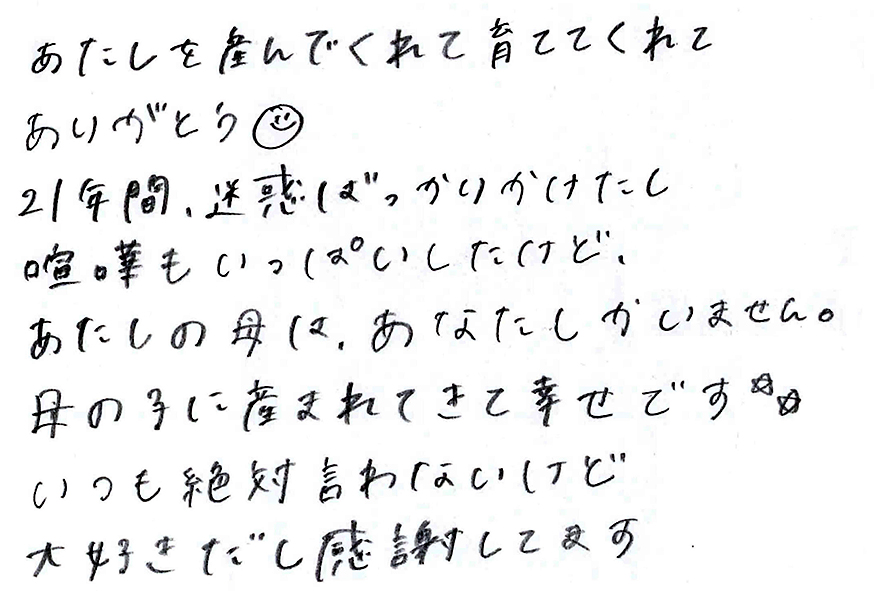 あたしを産んでくれて育ててくれて
ありがとう☺
21年間、迷惑ばっかりかけたし
喧嘩もいっぱいしたけど、
あたしの母は、あなたしかいません。
母の子に産まれてきて幸せです☆☆
いつも絶対言わないけど
大好きだし感謝してます